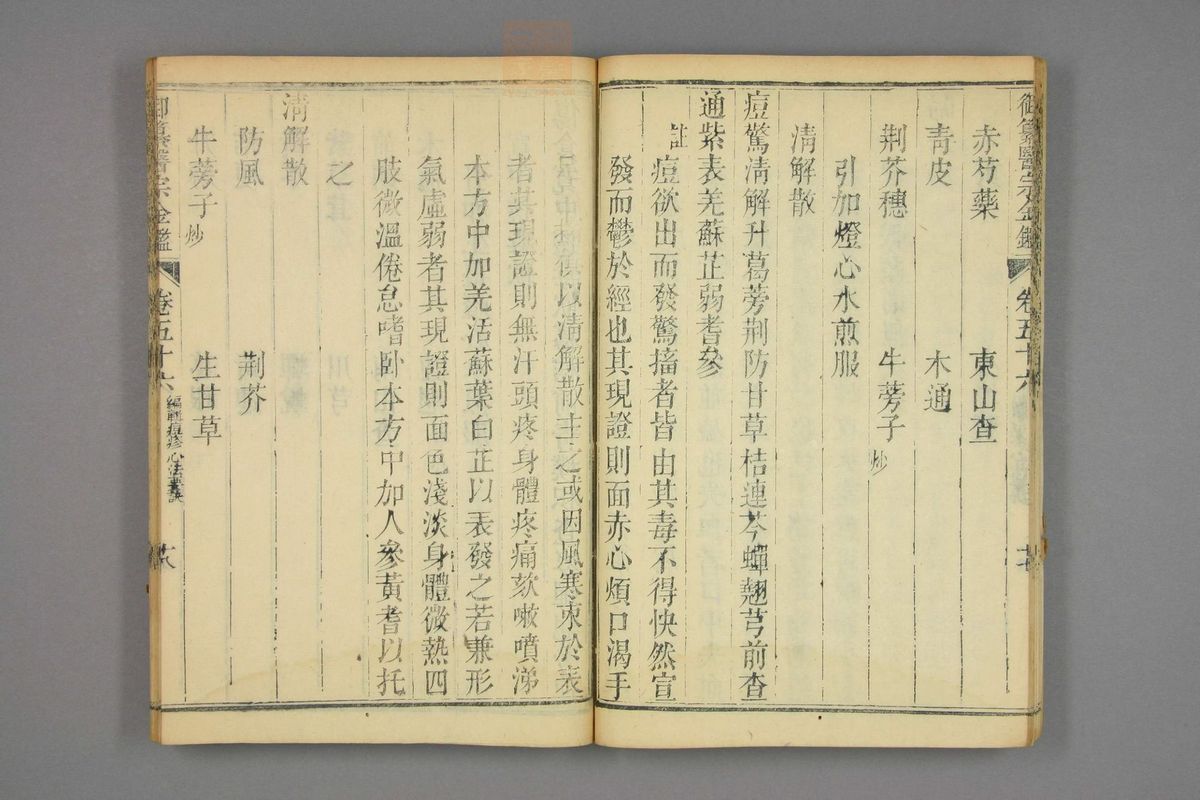 御纂醫宗金鑑 卷五十六
赤芍藥 東山查
靑皮 木通
荆芥穗 牛蒡子炒
引加燈心水煎服
淸解散
痘驚淸解升葛蒡荆防甘草桔連芩蟬翹芎前查
通紫表羌蘇芷弱耆參
註 痘欲出而發驚搐者皆由其毒不得快然宣
發而鬱於經也其現證則面赤心煩口渴手
以淸解散主之或因風寒束於表
者其現證則無汗頭疼身體疼痛欬嗽噴涕
本方中加羌活蘇葉白芷以表發之若兼形
氣虛弱者其現證則面色淺淡身體微熱四
肢微溫倦怠嗜卧本方中加人參黃耆以托
之
淸解散
防風 荆芥
牛蒡子炒 生甘草
御纂醫宗金鑑 卷五十六 編輯痘疹心法要訣